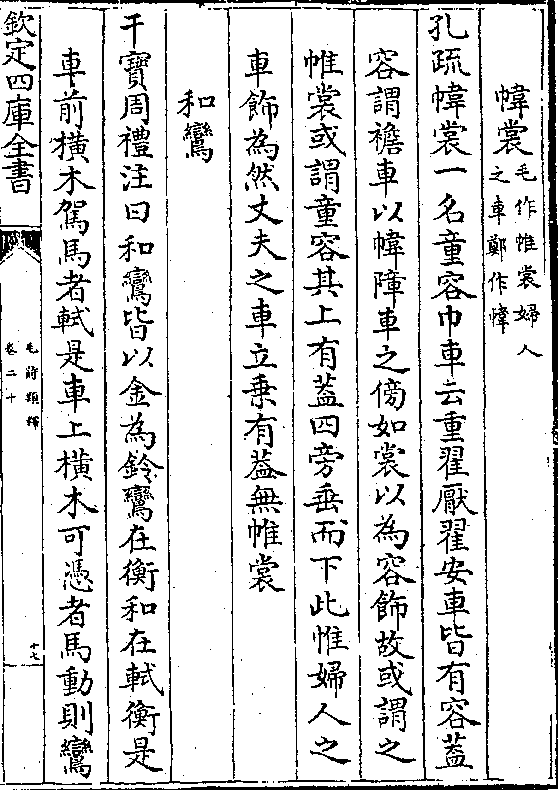 幃裳毛作帷裳婦人
之車鄭作幃
孔疏幃裳一名童容巾車云重翟厭翟安車皆有容葢
容謂襜車以幃障車之傍如裳以為容飾故或謂之
帷裳或謂童容其上有葢四旁垂而下此惟婦人之
車飾為然丈夫之車立乘有葢無帷裳
和鸞
干寶周禮注曰和鸞皆以金為鈴鸞在衡和在軾衡是
車前橫木駕馬者軾是車上橫木可憑者馬動則鸞
欽定四庫全書
毛詩類釋
卷二十
十七